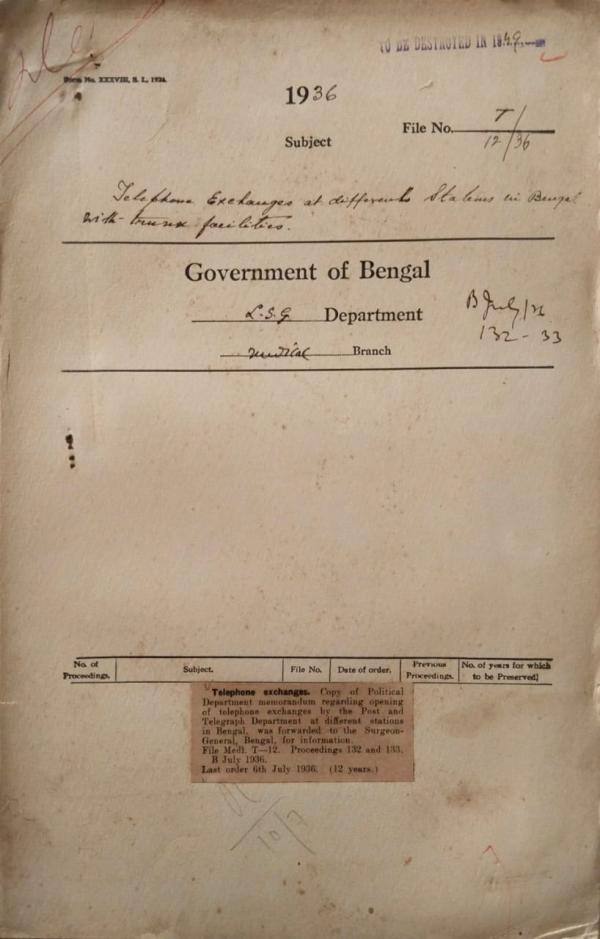 TO BE DESTROYED IN 1949
Form No. XXXVIII, S. I., 1934.
1936
File No. T/12/36
Subject
Telephone Exchanges at different Stations in Bengal
with trunk facilities.
Government of Bengal
L.S.G. Department
Medical Branch
B July/36
132-33
No. of Proceedings. Subject. File No. Date of order. Previous Proceedings. No. of years for which to be Preserved
Telephone exchanges. Copy of Political
Department memorandum regarding opening
of telephone exchanges by the Post and
Telegraph Department at different stations
in Bengal, was forwarded to the Surgeon-
General, Bengal, for information.
File Medl. T—12. Proceedings 132 and 133,
B July 1936.
Last order 6th July 1936. (12 years.)
10/7